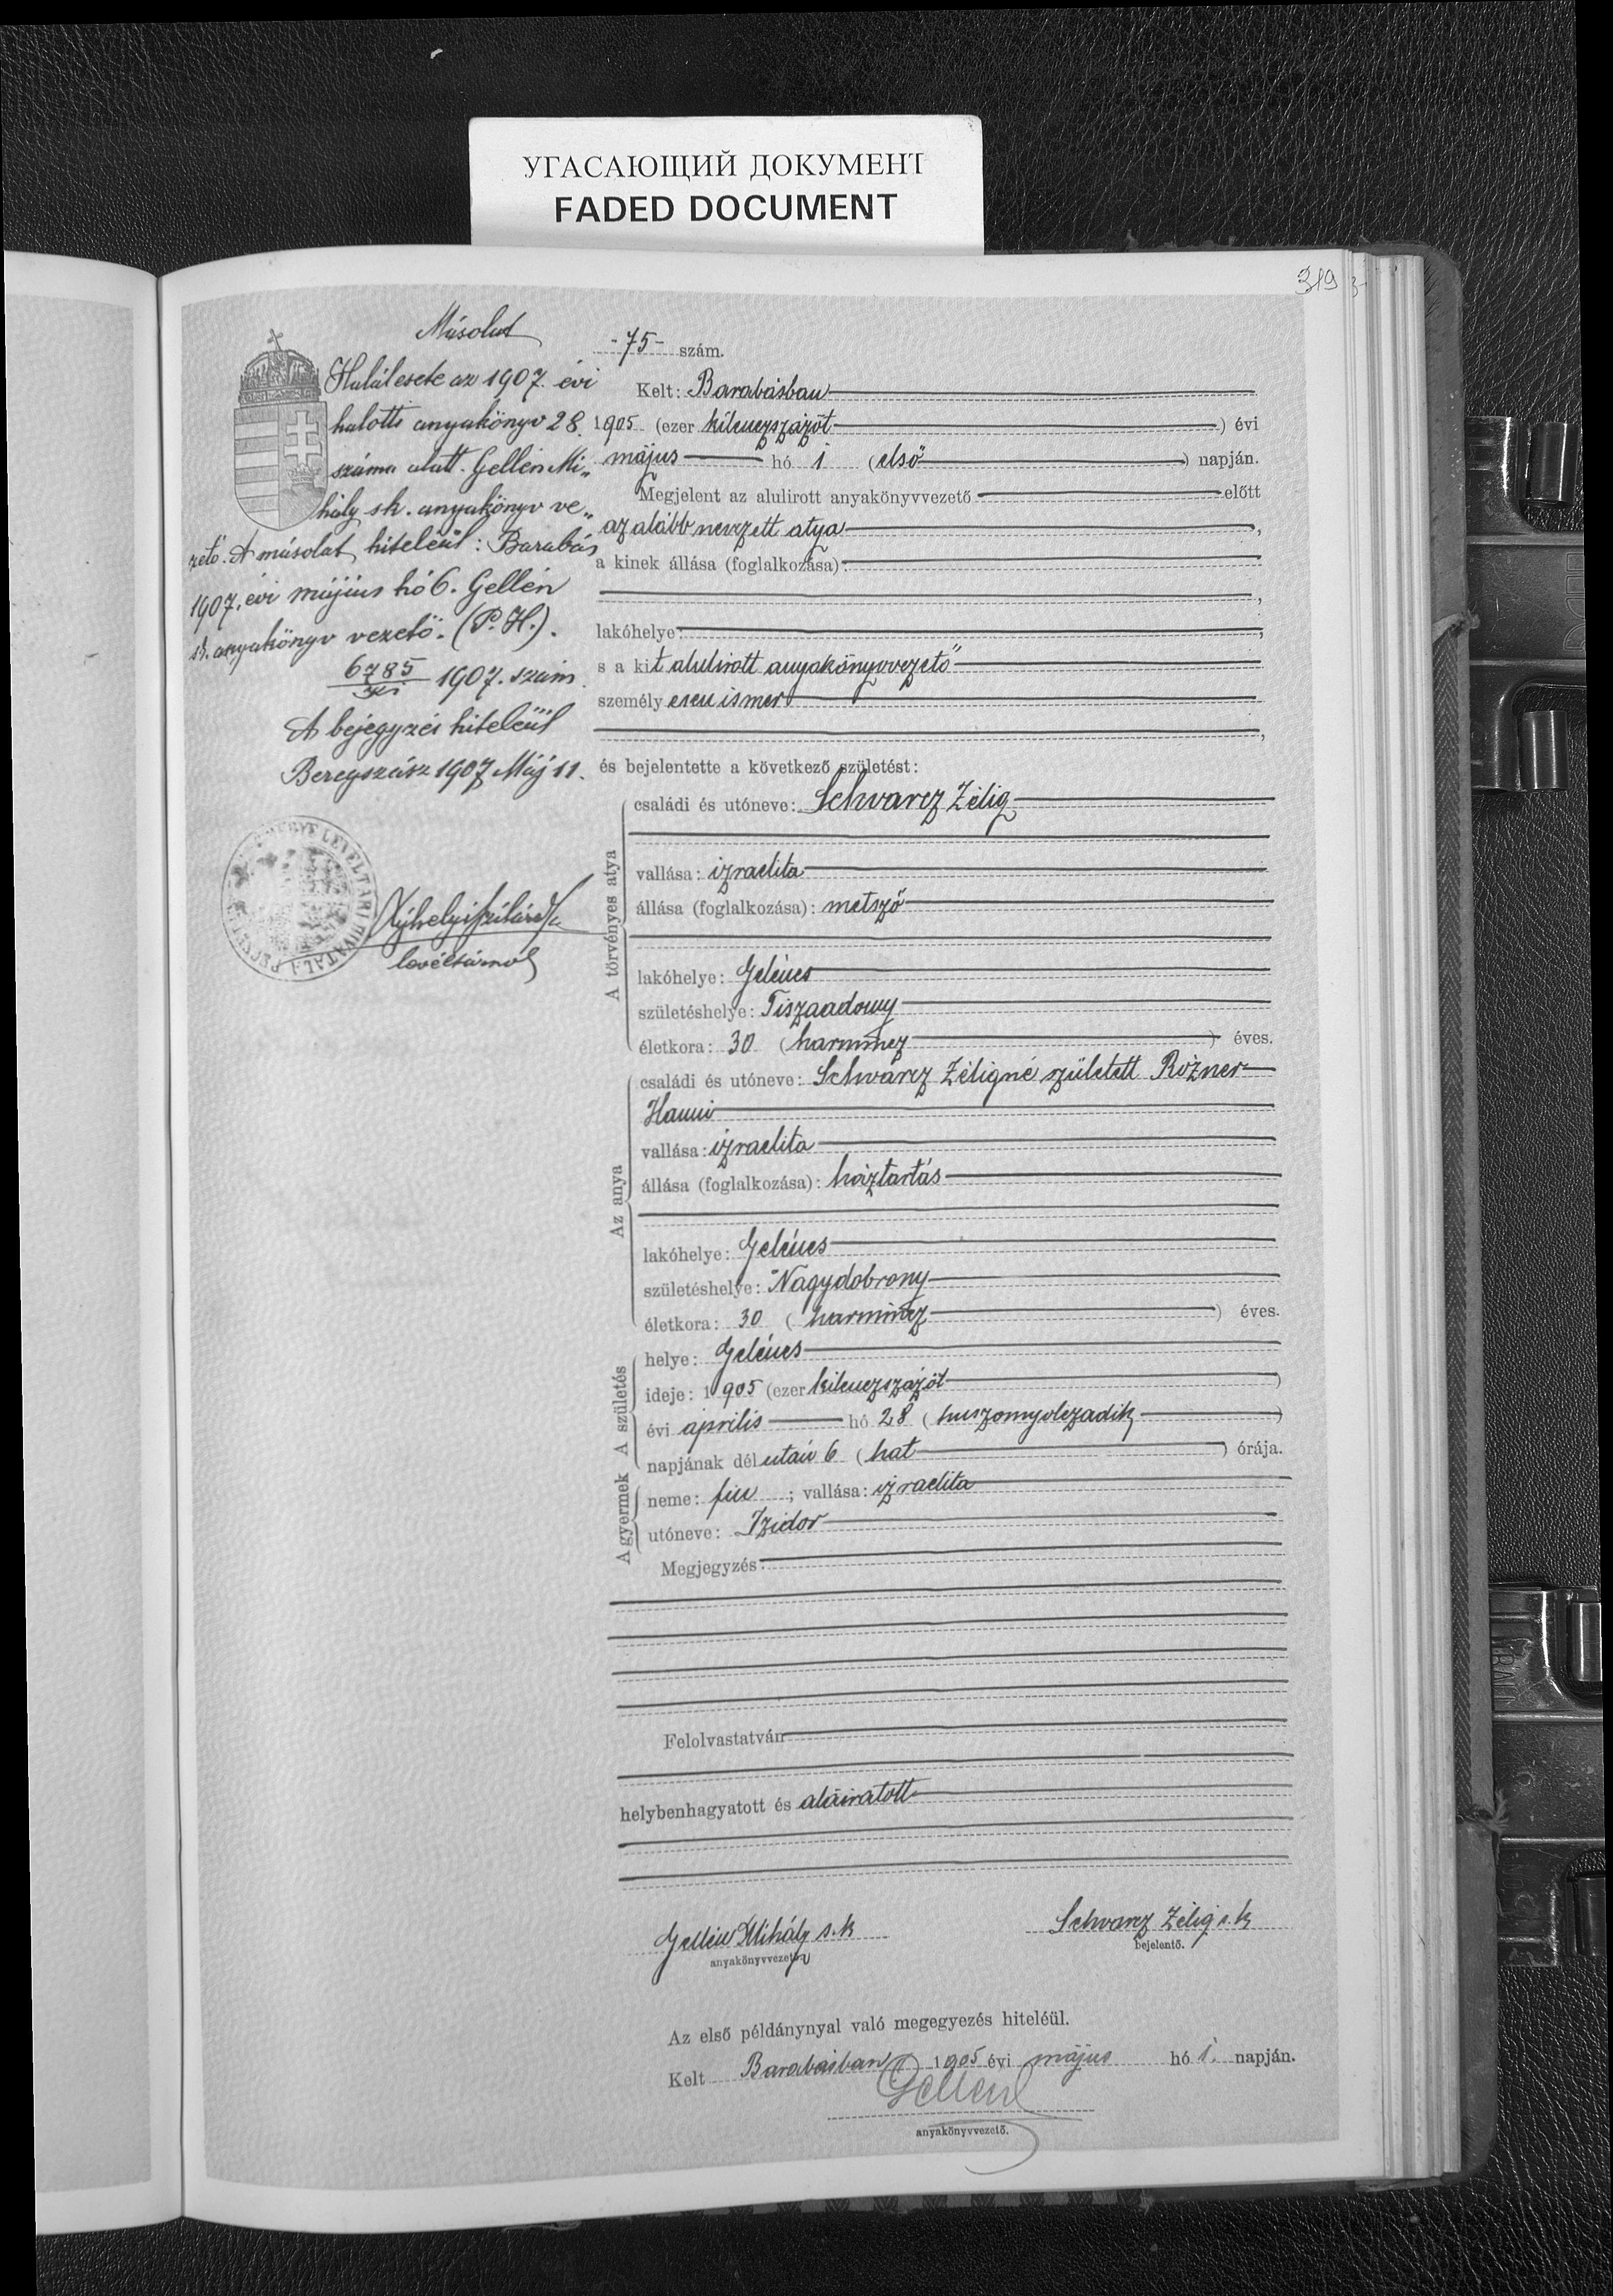 УГАСАЮЩИЙ ДОКУМЕНТ
FADED DOCUMENT
319
Másolat
Halálesete az 1907. évi
halotti anyakönyv 28.
száma alatt. Gellén Mi„
hály sk. anyakönyv ve„
zető. A másolat hiteléül: Barabás
1907. évi május hó 6. Gellén
sk. anyakönyv vezető. (P. H.).
6785 1907. szám.
A bejegyzés hiteléül
Beregszász 1907 Máj 11.
LEVÉLTÁRI HIVATALA
levéltárnok
-75- szám.
Kelt: Barabásban
1905 (ezer kilenczszázöt) évi
május hó 1 (első) napján.
Megjelent az alulirott anyakönyvvezető előtt
az alább nevezett atya,
a kinek állása (foglalkozása):
lakóhelye:
s a kit alulirott anyakönyvvezető
személyesen ismer
és bejelentette a következő születést:
A törvényes atya
családi és utóneve: Schvarcz Zélig
vallása: izraelita
állása (foglalkozása): metsző
lakóhelye: Gelénes
születéshelye: Tiszaadony
életkora: 30 (harmincz) éves.
Az anya
családi és utóneve: Schvarcz Zéligné született Rózner
Hanni
vallása: izraelita
állása (foglalkozása): háztartás
lakóhelye: Gelénes
születéshelye: Nagydobrony
életkora: 30 (harmincz) éves.
A születés
helye: Gelénes
ideje: 1905 (ezer kilenczszázöt)
évi április hó 28 (huszonnyolczadik)
napjának délután 6 (hat) órája.
A gyermek
neme: fiu; vallása: izraelita
utóneve: Izidor
Megjegyzés:
Felolvastatván
helybenhagyatott és aláiratott
Gellén Mihály s. k Schvarcz Zélig s. k
anyakönyvvezető bejelentő.
Az első példánynyal való megegyezés hiteléül.
Kelt Barabásban 1905 évi május hó 1. napján.
Gellén
anyakönyvvezető.